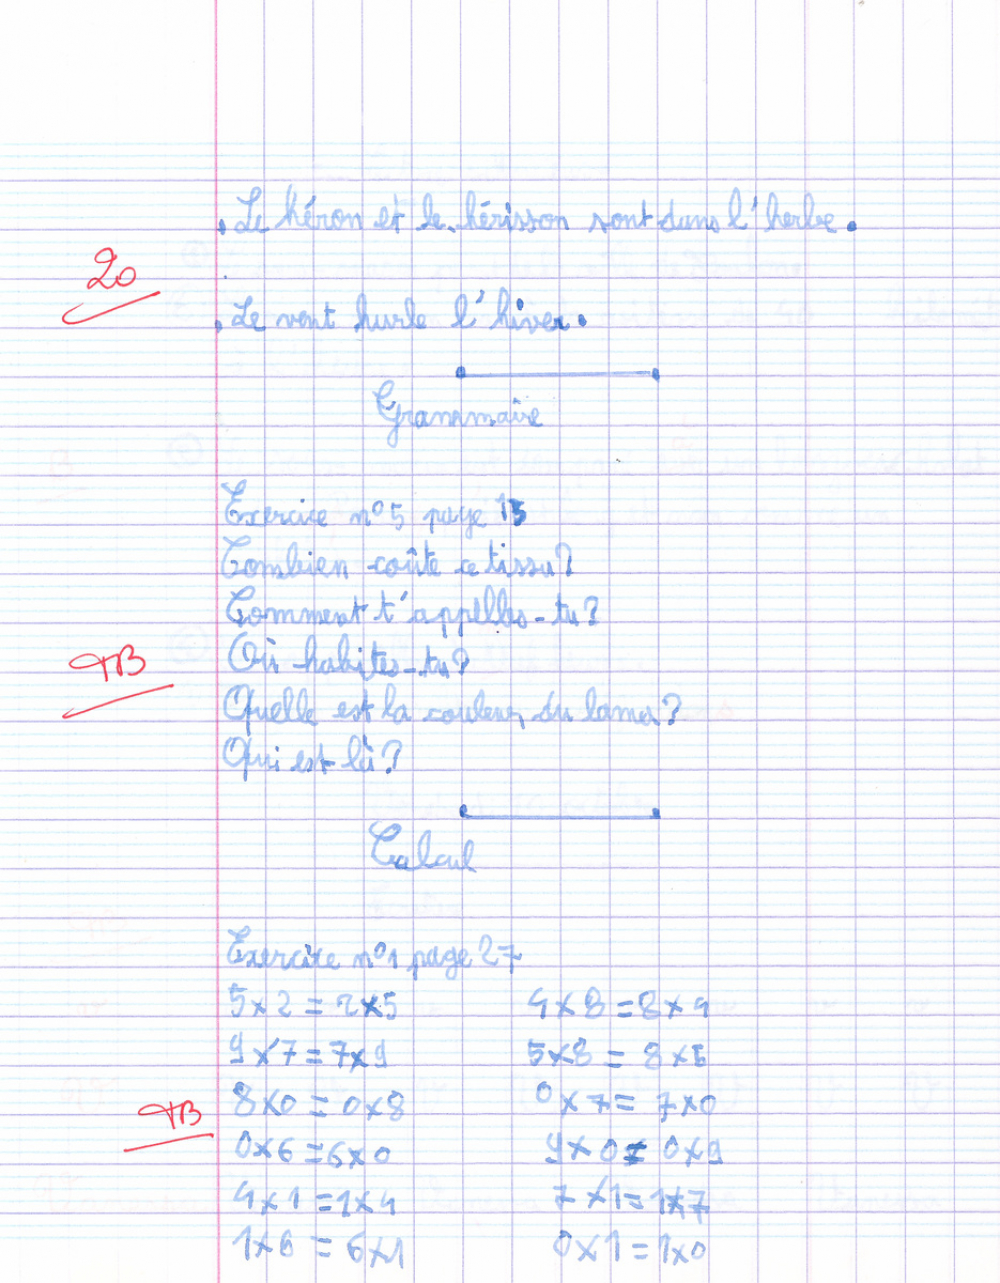 . Le héron et le hérisson sont dans l'herbe.
20
. Le vent hurle l'hiver.
Grammaire
Exercice n°5 page 15
Combien coûte ce tissu?
Comment t'appelles-tu?
TB
Où habites-tu?
Quelle est la couleur du lama?
Qui est là?
Calcul
Exercice n°1 page 27
5×2=2×5 4×8=8×4
9×7=7×9 5×8=8×5
8×0=0×8 0×7=7×0
TB
0×6=6×0 9×0=0×9
4×1=1×4 7×1=1×7
1×6=6×1 0×1=1×0